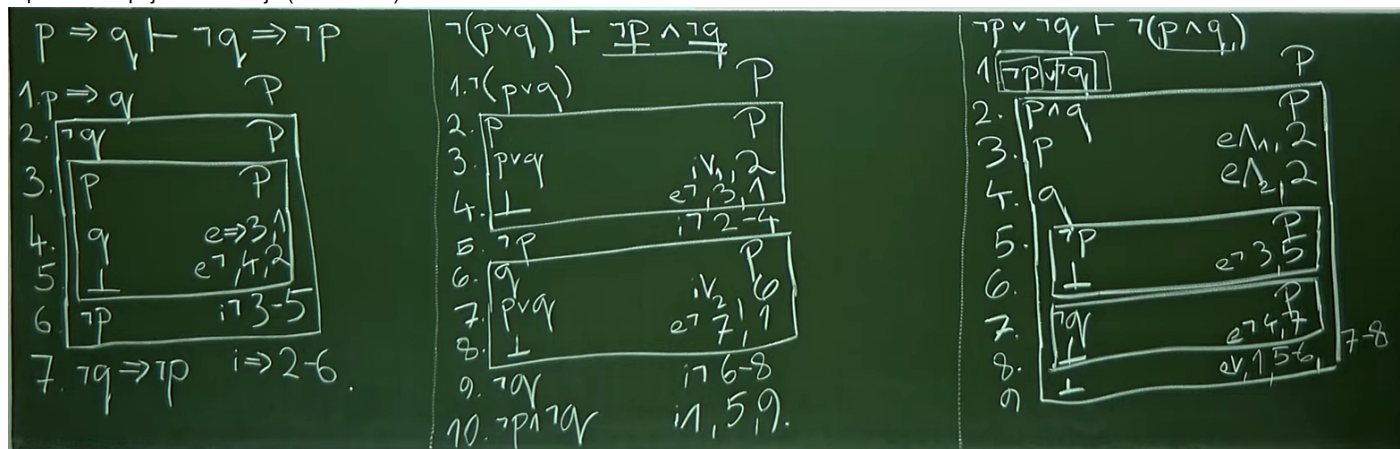 p ⇒ q ⊢ ¬q ⇒ ¬p
1. p ⇒ q P
2. ¬q P
3. p P
4. q e⇒3,1
5 ⊥ e¬,4,2
6 ¬p i¬3-5
7. ¬q ⇒ ¬p i⇒2-6.
¬(p∨q) ⊢ ¬p ∧ ¬q
1. ¬(p∨q) P
2. p P
3. p∨q i∨₁,2
4. ⊥ e¬,3,1
5. ¬p i¬2-4
6. q P
7. p∨q i∨₂,6
8. ⊥ e¬7,1
9. ¬q i¬6-8
10. ¬p∧¬q i∧,5,9.
¬p∨¬q ⊢ ¬(p∧q)
1 ¬p∨¬q P
2. p∧q P
3. p e∧₁,2
4. q e∧₂,2
5. ¬p P
6. ⊥ e¬3,5
7. ¬q P
8. ⊥ e¬4,7
9 ⊥ e∨,1,5-6, 7-8